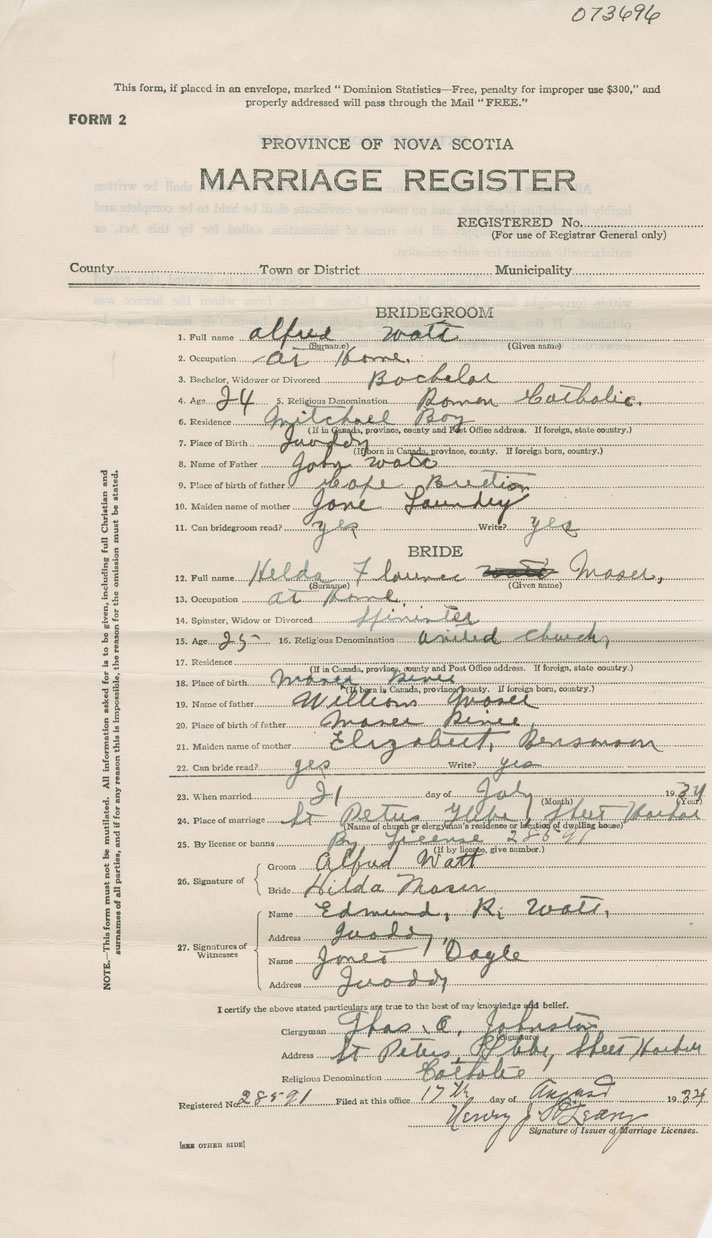 073696
This form, if placed in an envelope, marked "Dominion Statistics—Free, penalty for improper use $300," and
properly addressed will pass through the Mail "FREE."
FORM 2
PROVINCE OF NOVA SCOTIA
MARRIAGE REGISTER
REGISTERED No.
(For use of Registrar General only)
County Town or District Municipality
BRIDEGROOM
1. Full name Alfred Watt
(Surname) (Given name)
2. Occupation at Home.
3. Bachelor, Widower or Divorced Bachelor
4. Age 24 5. Religious Denomination Roman Catholic.
6. Residence Mitchael Bay
(If in Canada, province, county and Post Office address. If foreign, state country.)
7. Place of Birth Quoddy
(If born in Canada, province, county. If foreign born, country.)
8. Name of Father John Watt
9. Place of birth of father Cape Bretion
10. Maiden name of mother Jane Laundry
11. Can bridegroom read? yes Write? yes
BRIDE
12. Full name Helda Florence Moser,
(Surname) (Given name)
13. Occupation at Home
14. Spinster, Widow or Divorced Spinster
15. Age 25 16. Religious Denomination United Church,
17. Residence
(If in Canada, province, county and Post Office address. If foreign, state country.)
18. Place of birth Moser River
(If born in Canada, province, county. If foreign born, country.)
19. Name of father William Moser
20. Place of birth of father Moser River,
21. Maiden name of mother Elizabeth,
22. Can bride read? yes Write? yes
23. When married 21 day of July 1934
(Month) (Year)
24. Place of marriage St Peters Glebe, Sheet Harbor
(Name of church or clergyman's residence or location of dwelling house)
25. By license or banns By License 28591
(If by license, give number.)
26. Signature of
Groom Alfred Watt
Bride Hilda Moser
27. Signatures of Witnesses
Name Edmund, R. Watt,
Address Quoddy,
Name Doyle
Address Quoddy
I certify the above stated particulars are true to the best of my knowledge and belief.
Clergyman Chas. E. Johnston
(Signature)
Address St Peters, Glebe, Sheet Harbor
Religious Denomination Catholic
Registered No. 28591 Filed at this office 17th day of August 1934
Henry J. O'Leary
Signature of Issuer of Marriage Licenses.
[SEE OTHER SIDE]
NOTE.—This form must not be mutilated. All information asked for is to be given, including full Christian and
surnames of all parties, and if for any reason this is impossible, the reason for the omission must be stated.